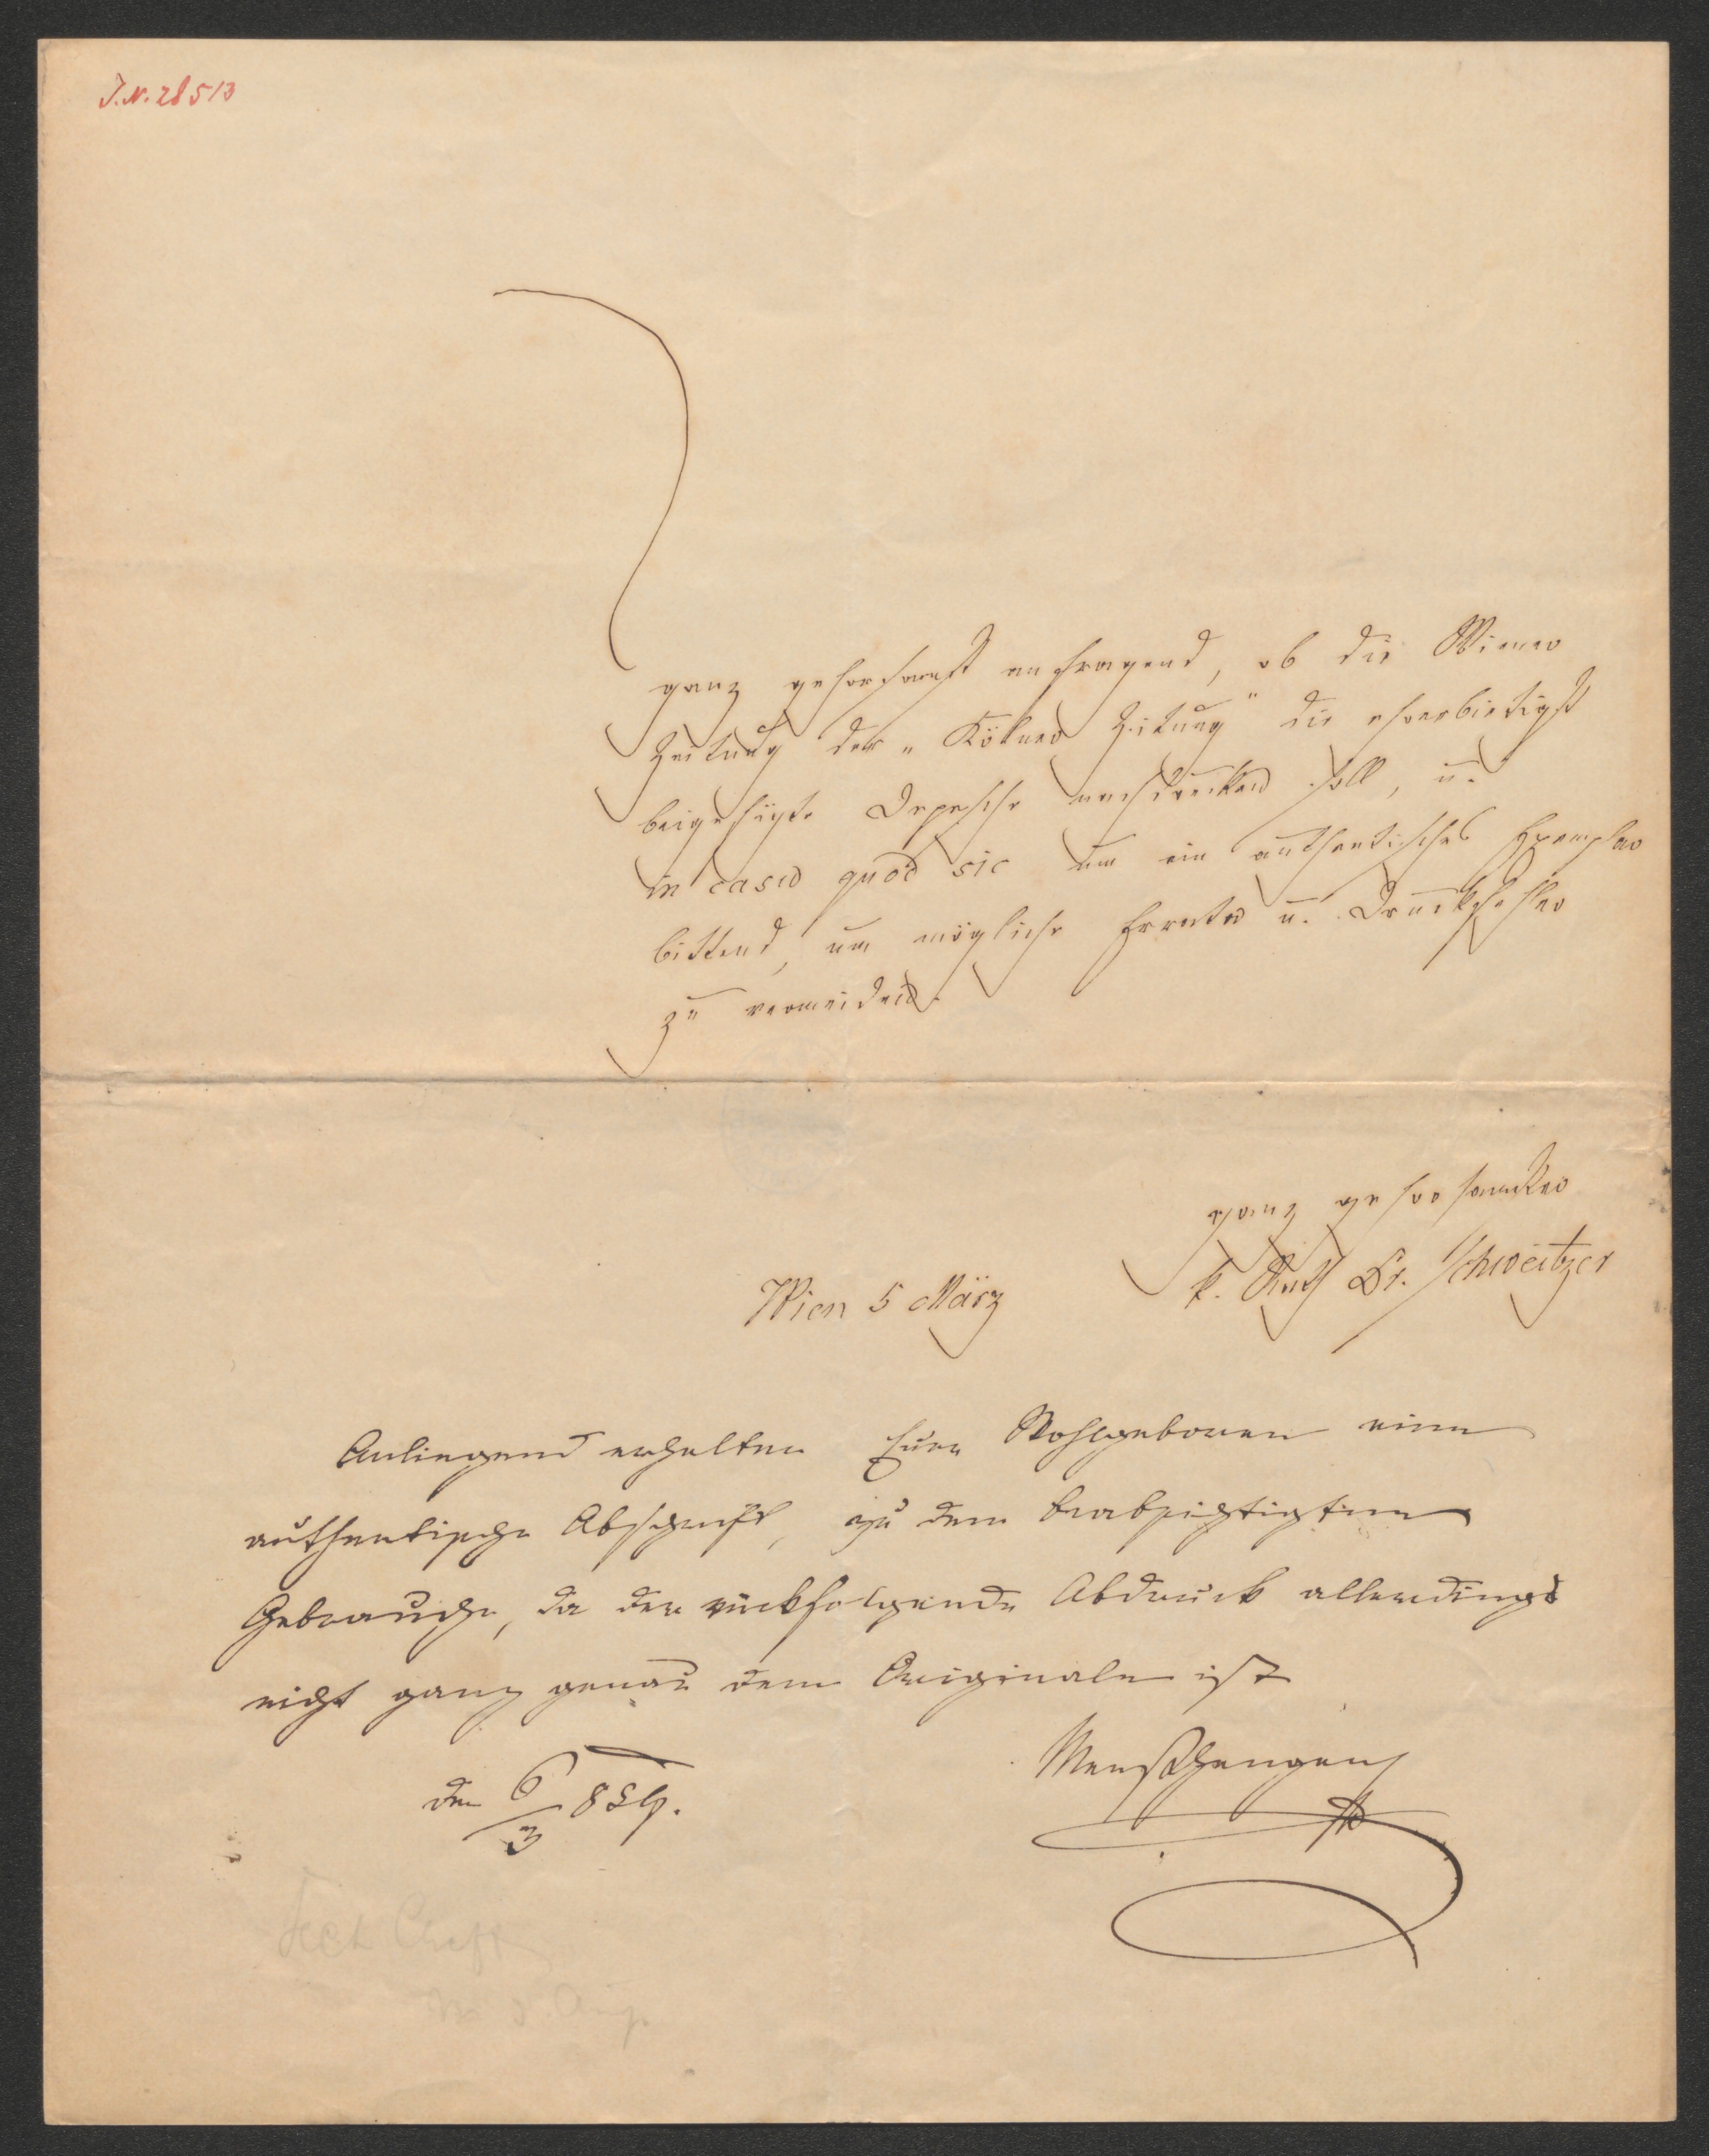 J.N. 28513
ganz gehorsamst anfragend, ob die Wiener
Zeitung der „Kölner Zeitung" die ehrerbietigst
beigefügte Depesche nachdrucken soll, u.
in casu quod sic um ein authentisches Exemplar
bittend, um mögliche Errata u. Druckfehler
zu vermeiden.
ganz gehorsamster
k. Rath Dr. Schweitzer
Wien 5 März
Anliegend erhalten Euer Wohlgeboren eine
authentische Abschrift, zu dem beabsichtigten
Gebrauche, da der rückfolgende Abdruck allerdings
nicht ganz genau dem Originale ist
den 6/3 859.
Menßhengen